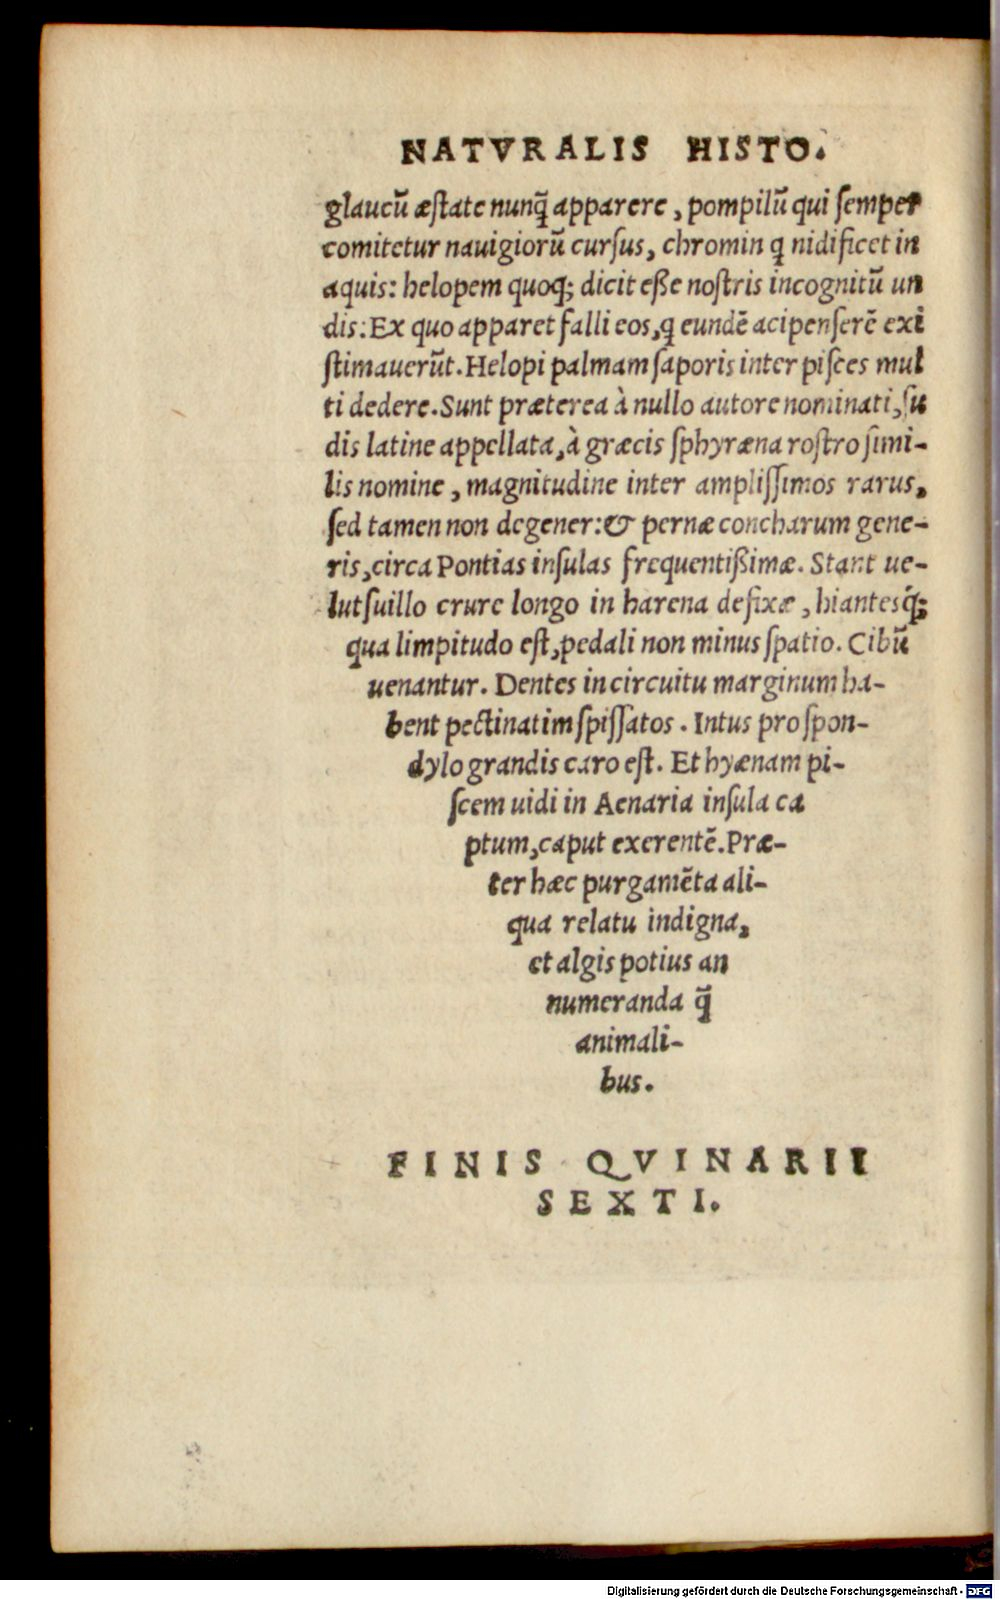 NATVRALIS HISTO.
glaucū æſtate nunq̄ apparere, pompilū qui ſemper
comitetur nauigiorū curſus, chromin q nidificet in
aquis: helopem quoq; dicit eße noſtris incognitū un
dis: Ex quo apparet falli eos, q eundē acipenſerē exi
ſtimauerūt. Helopi palmam ſaporis inter piſces mul
ti dedere. Sunt præterea à nullo autore nominati, ſu
dis latine appellata, à græcis ſphyræna roſtro ſimi-
lis nomine, magnitudine inter ampliſſimos rarus,
ſed tamen non degener: & pernæ concharum gene-
ris, circa Pontias inſulas frequentißimæ. Stant ue-
lut ſuillo crure longo in harena defixæ, hiantesq́;
qua limpitudo eſt, pedali non minus ſpatio. Cibū
uenantur. Dentes in circuitu marginum ha-
bent pectinatim ſpiſſatos. Intus pro ſpon-
dylo grandis caro eſt. Et hyænam pi-
ſcem uidi in Aenaria inſula ca
ptum, caput exerentē. Præ-
ter hæc purgamēta ali-
qua relatu indigna,
et algis potius an
numeranda q̄
animali-
bus.
FINIS QVINARII
SEXTI.
Digitalisierung gefördert durch die Deutsche Forschungsgemeinschaft - DFG